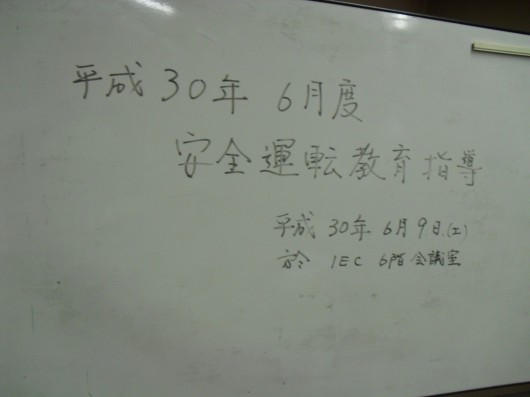 平成30年 6月度
安全運転教育指導
平成 30年 6月9日.(土)
於 IEC 6階会議室